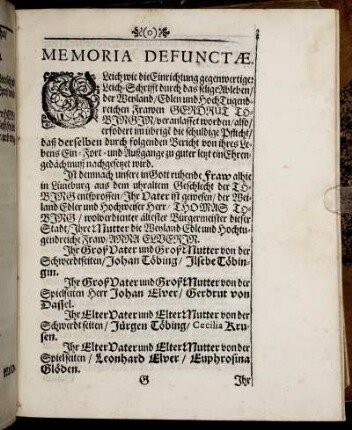 (o)
MEMORIA DEFUNCTÆ.
GLeich wie die Einrichtung gegenwertiger
Leich-Schrifft durch das selige Ableiben/
der Weyland/Edlen und HochTugend-
reichen Frawen GERDRUT TÖ-
BINGIN/veranlasset worden/also/
erfodert im übrigē die schuldige Pflicht/
daß derselben durch folgenden Bericht von ihres Le-
bens Ein- Fort- und Außgange zu guter letzt ein Ehren-
gedächtnuß nachgesetzet wird.
Ist demnach unsere in Gott ruhende Fraw alhie
in Lüneburg aus dem uhraltem Geschlecht der TÖ-
BING entsprossen/Ihr Vater ist gewesen/der Wei-
land Edler und Hochweiser Herr/THOMAS TÖ-
BING/wolverdienter ältester Bürgermeister dieser
Stadt/Ihre Mutter die Weyland Edle und Hochtu-
gendreiche Fraw/ANNA ELVERIN.
Ihr GroßVater und GroßMutter von der
Schwerdtseiten/Johan Töbing/Ilsebe Töbin-
gin.
Ihr GroßVater und GroßMutter von der
Spielseiten Herr Johan Elver/Gerdrut von
Dassel.
Ihr ElterVater und ElterMutter von der
Schwerdtseiten/Jürgen Töbing/Cecilia Kru-
sen.
Ihr ElterVater und ElterMutter von der
Spielseiten/Leonhard Elver/Euphrosina
Glöden.
G Ihr